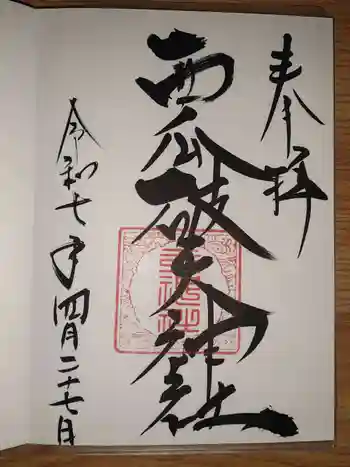 奉拝
西瓜破天神社
令和七年四月二十七日